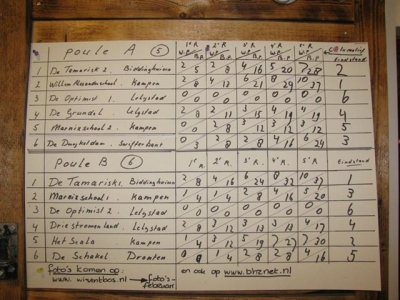 Poule A 5 1e R 2e R 3e R 4e R 5e R
W.P. B.P. W.P. B.P. W.P. B.P. W.P. B.P. W.P. B.P. Eindstand
1 De Tamarisk 2. Biddinghuizen 2 5 2 8 4 16 5 20 7 28 2
2 Kampen 2 8 4 13 6 21 8 29 10 37 1
3 De Optimist 1. Lelystad 0 0 0 0 0 0 0 0 0 0 6
4 De Grundel. Lelystad 2 8 2 11 3 15 4 19 4 19 4
5 Marnixschool 2. Kampen 0 0 2 8 3 12 3 12 3 12 5
6 De Duykeldam. Swifterbant 0 3 2 8 2 8 4 16 6 24 3
Poule B 6 1e R. 2e R. 3e R. 4e R. 5e R Eindstand
1 De Tamarisk 1. Biddinghuizen 2 8 4 16 6 24 8 32 10 37 1
2 Marnixschool 1. Kampen 1 4 1 4 2 8 4 16 5 20 3
3 De Optimist 2 Lelystad 0 0 0 0 0 0 0 0 0 0 6
4 Driestromenland. Lelystad 2 8 2 8 3 12 3 13 4 17 4
5 Het Scala Kampen 1 4 3 12 5 19 7 27 7 30 2
6 De Schakel Dronten 5
foto's komen op: en ook op www.bhznet.nl
www.wisentbos.nl → foto's-
februari